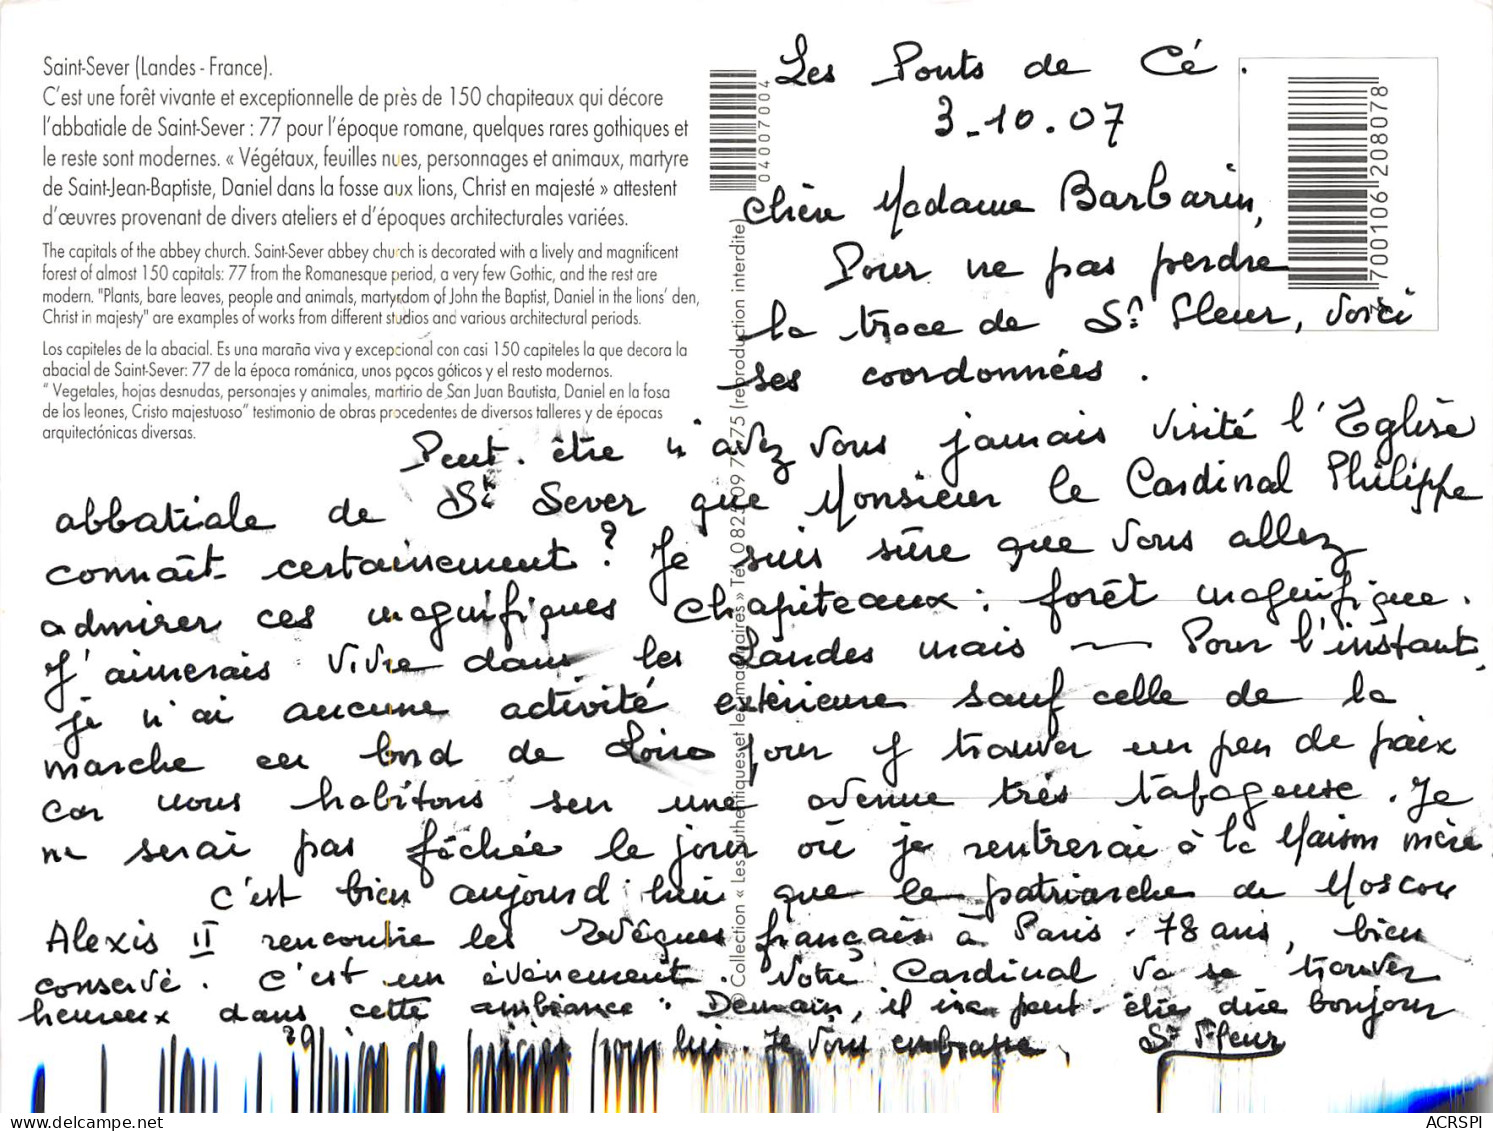 Saint-Sever (Landes - France).
C'est une forêt vivante et exceptionnelle de près de 150 chapiteaux qui décore
l'abbatiale de Saint-Sever : 77 pour l'époque romane, quelques rares gothiques et
le reste sont modernes. « Végétaux, feuilles nues, personnages et animaux, martyre
de Saint-Jean-Baptiste, Daniel dans la fosse aux lions, Christ en majesté » attestent
d'œuvres provenant de divers ateliers et d'époques architecturales variées.
The capitals of the abbey church. Saint-Sever abbey church is decorated with a lively and magnificent
forest of almost 150 capitals: 77 from the Romanesque period, a very few Gothic, and the rest are
modern. "Plants, bare leaves, people and animals, martyrdom of John the Baptist, Daniel in the lions' den,
Christ in majesty" are examples of works from different studios and various architectural periods.
Los capiteles de la abacial. Es una maraña viva y excepcional con casi 150 capiteles la que decora la
abacial de Saint-Sever: 77 de la época románica, unos pocos góticos y el resto modernos.
" Vegetales, hojas desnudas, personajes y animales, martirio de San Juan Bautista, Daniel en la fosa
de los leones, Cristo majestuoso" testimonio de obras procedentes de diversos talleres y de épocas
arquitectónicas diversas.
04007004
Collection « Les Authentiques et les imaginaires » Tél. 0 825 09 75 (reproduction interdite)
700106 208078
Les Ponts de Cé.
3-10.07
Chère Madame Barbarin,
Pour ne pas perdre
la trace de Sr Fleur, voici
ses coordonnées.
Peut-être n'avez vous jamais visité l'Eglise
abbatiale de St Sever que Monsieur le Cardinal Philippe
connaît certainement ? Je suis sûre que vous allez
admirer ces magnifiques chapiteaux : forêt magnifique.
J'aimerais vivre dans les Landes mais — Pour l'instant,
je n'ai aucune activité extérieure sauf celle de la
marche en bord de Loire pour y trouver un peu de paix
car nous habitons sur une avenue très tapageuse. Je
ne serai pas fâchée le jour où je rentrerai à la Maison mère.
C'est bien aujourd'hui que le patriarche de Moscou
Alexis II rencontre les Evêques français à Paris. 78 ans, bien
conservé. C'est un événement. Notre Cardinal va se trouver
heureux dans cette ambiance : Demain, il ira peut-être dire bonjour
pour lui. Je vous embrasse, Sr Fleur
www.delcampe.net
ACRSPI